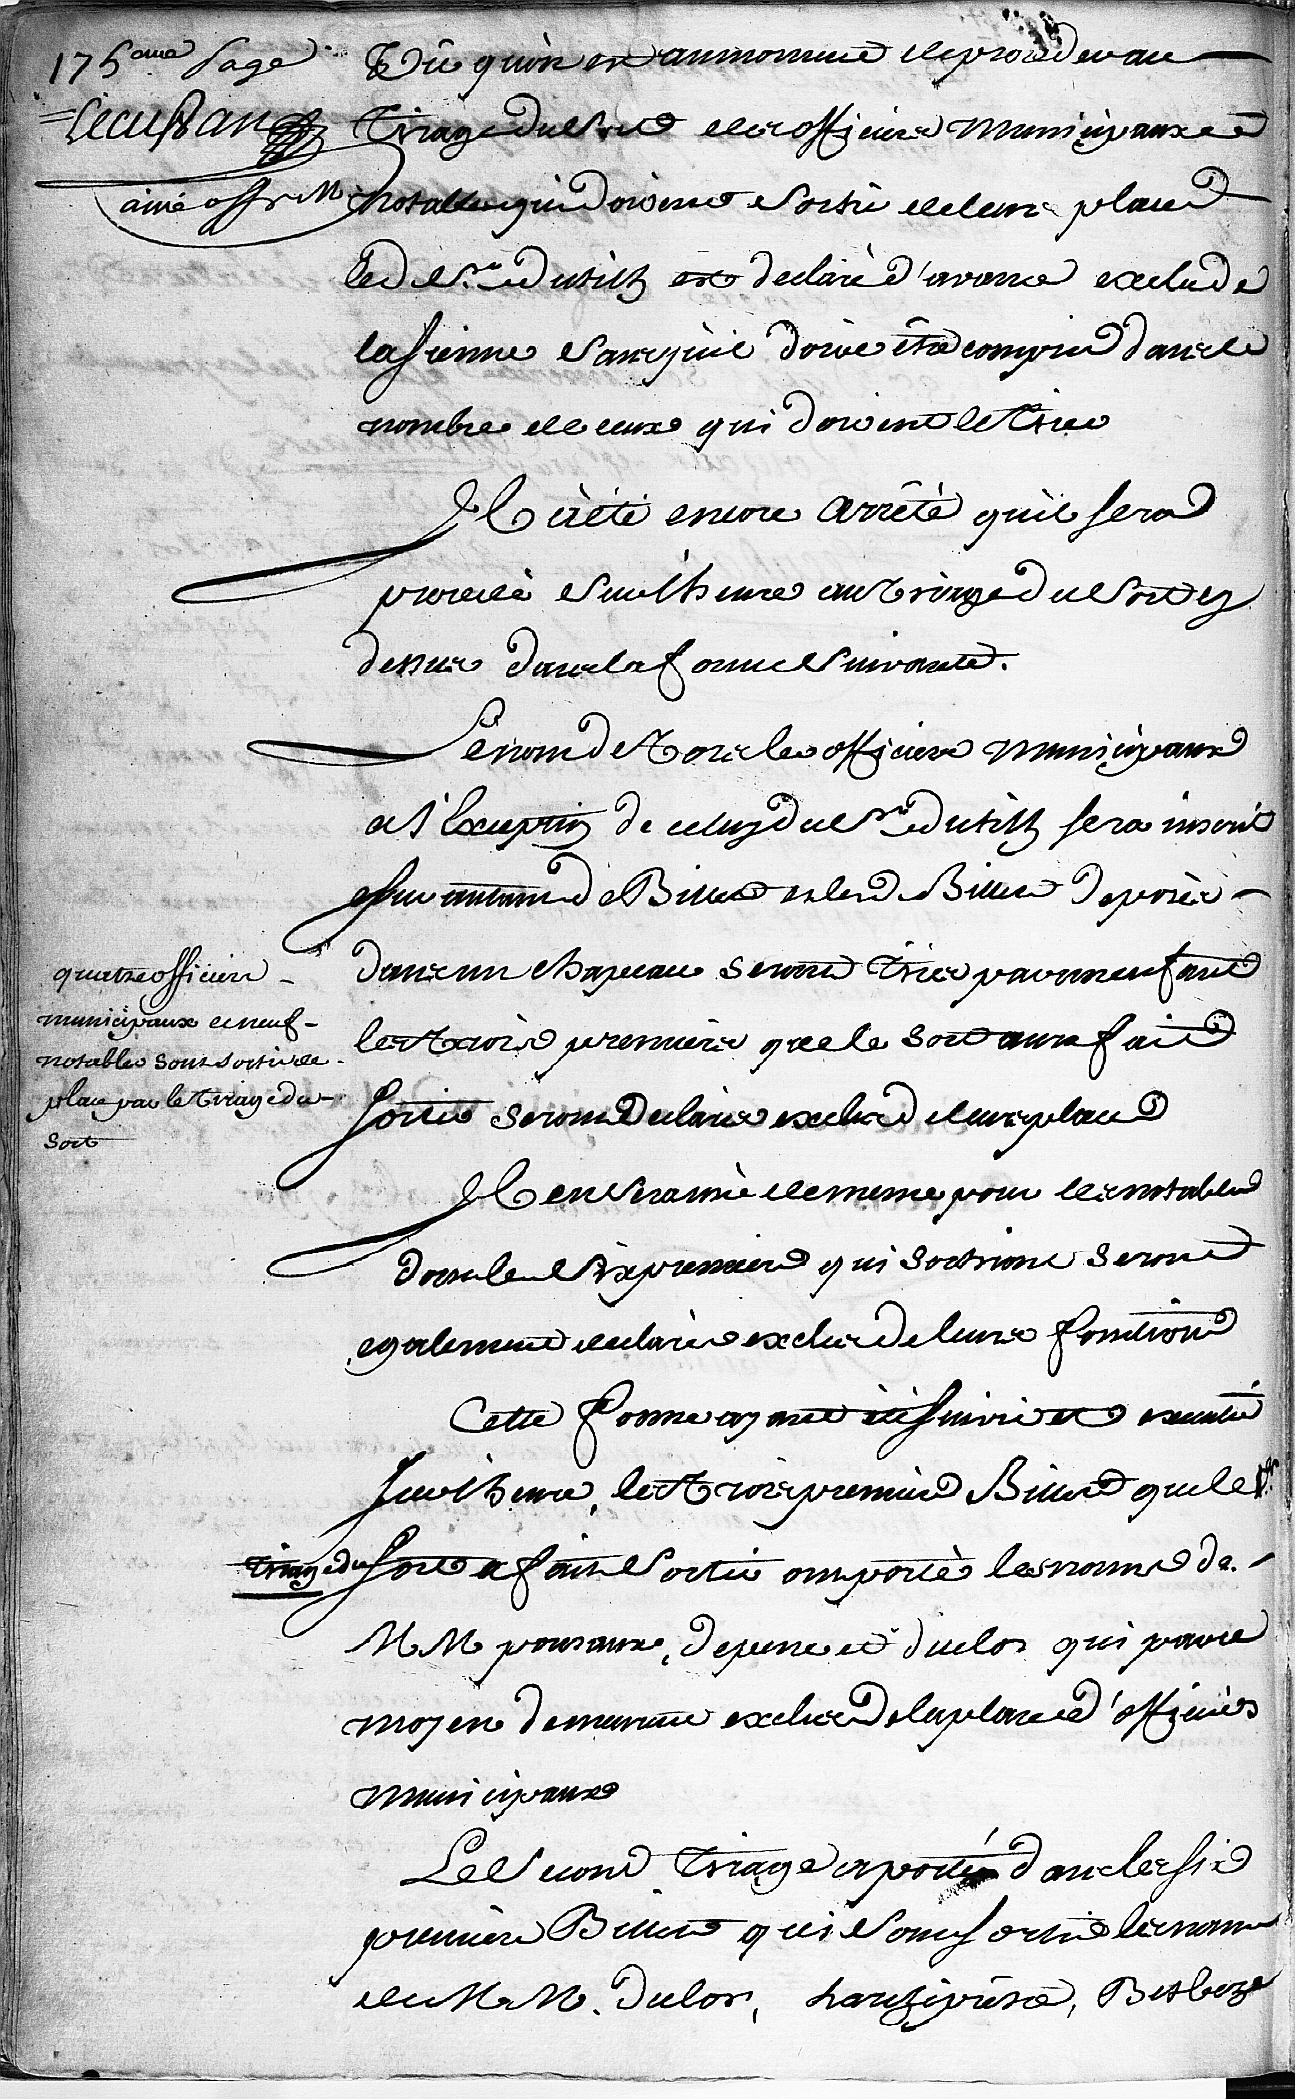 175eme page
Lecussan
ainé offr M
Dû qu'on en au moment de proceder au
Tirage du Sort des officiers Municipaux et
notables qui doivent Sortir de leurs places
led. Sr. dutilh est declaré d'avance exclu de
la Sienne Sans qu'il doive être compris dans le
nombre de ceux qui doivent le tirer
Il a été encore arrêté qu'il sera
procedé Sur l'heure au tirage du Sort cy
dessus dans la forme Suivante.
Le nom de tous les officiers municipaux
a l'exception de celuy du Sr. dutilh sera inscrit
sur autant de Billets lesd. Billets deposés
dans un chapeau seront tirés par un enfant
les trois premiers que le sort aura fait
sortir seront declarés exclus de leurs places
quatre officiers
municipaux et neuf
notables sont sortis de
place par le tirage du
sort
Il en Sera usé de meme pour les notables
dont les Six premiers qui sortiront seront
egalement declarés exclus de leurs fonctions
Cette forme ayant été suivie et executée
sur l'heure, les trois premiers Billets que le
tirage du
sort a fait Sortir ont porté les noms de
MM pouraux, depene et duclos qui par ce
moyen demeurent exclus de la place d'officiers
municipaux
Le Second tirage a porté dans les six
premiers Billets qui Sont sortis les noms
de MM. duclos,